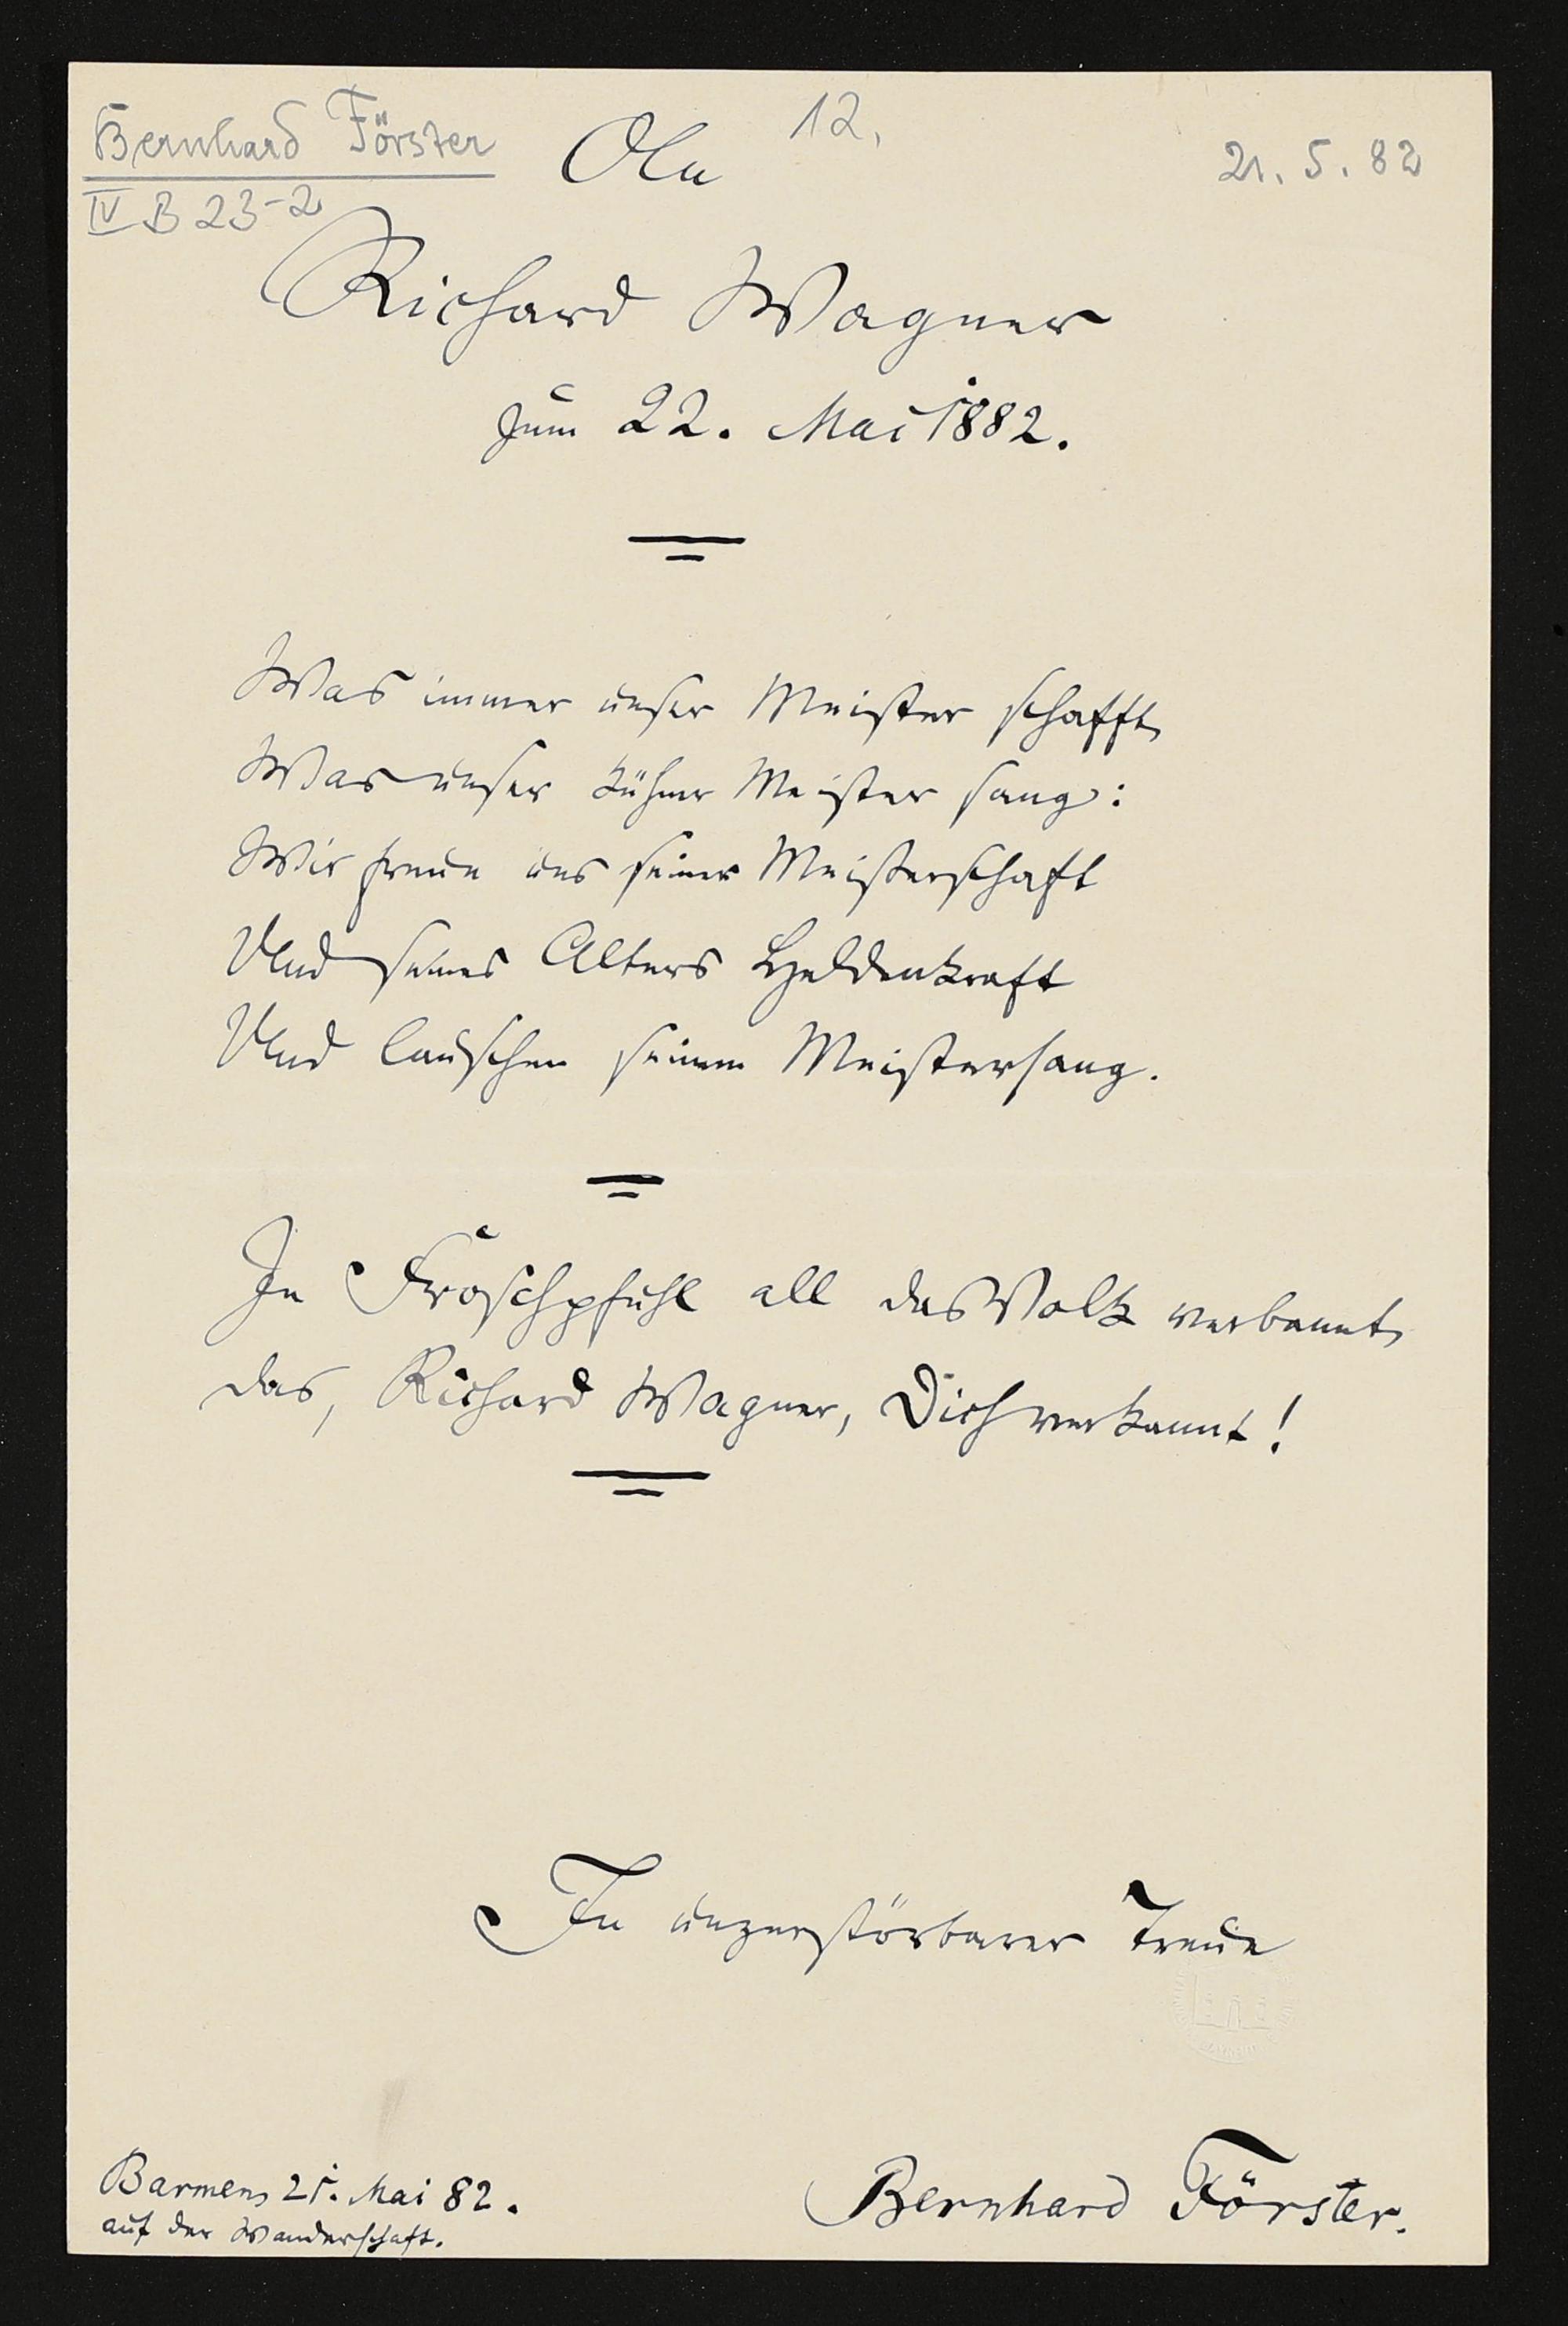 Bernhard Förster
12.
21. 5. 82
IV B 23-2
An
Richard Wagner
zum 22. Mai 1882.
Was immer unser Meister schafft,
Was unser kühner Meister sang:
Wir freun uns seiner Meisterschaft
Und seines Alters Heldenkraft
Und lauschen seinem Meistersang.
In Froschpfuhl all das Volk verbannt,
das, Richard Wagner, Dich verkannt!
In unzerstörbarer Treue
Bernhard Förster.
Barmen, 21. Mai 82.
auf der Wanderschaft.